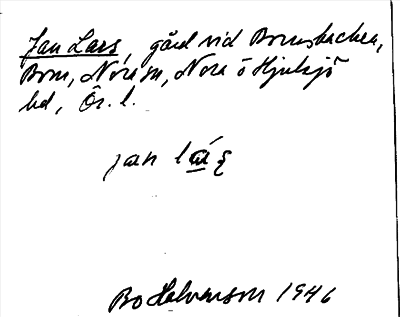 Jan Lars, gård vid Bornsbacken,
Born, Nora sn, Nora o Hjulsjö
hd, Ör. l.
jan lás
Bo Halvarson 1946